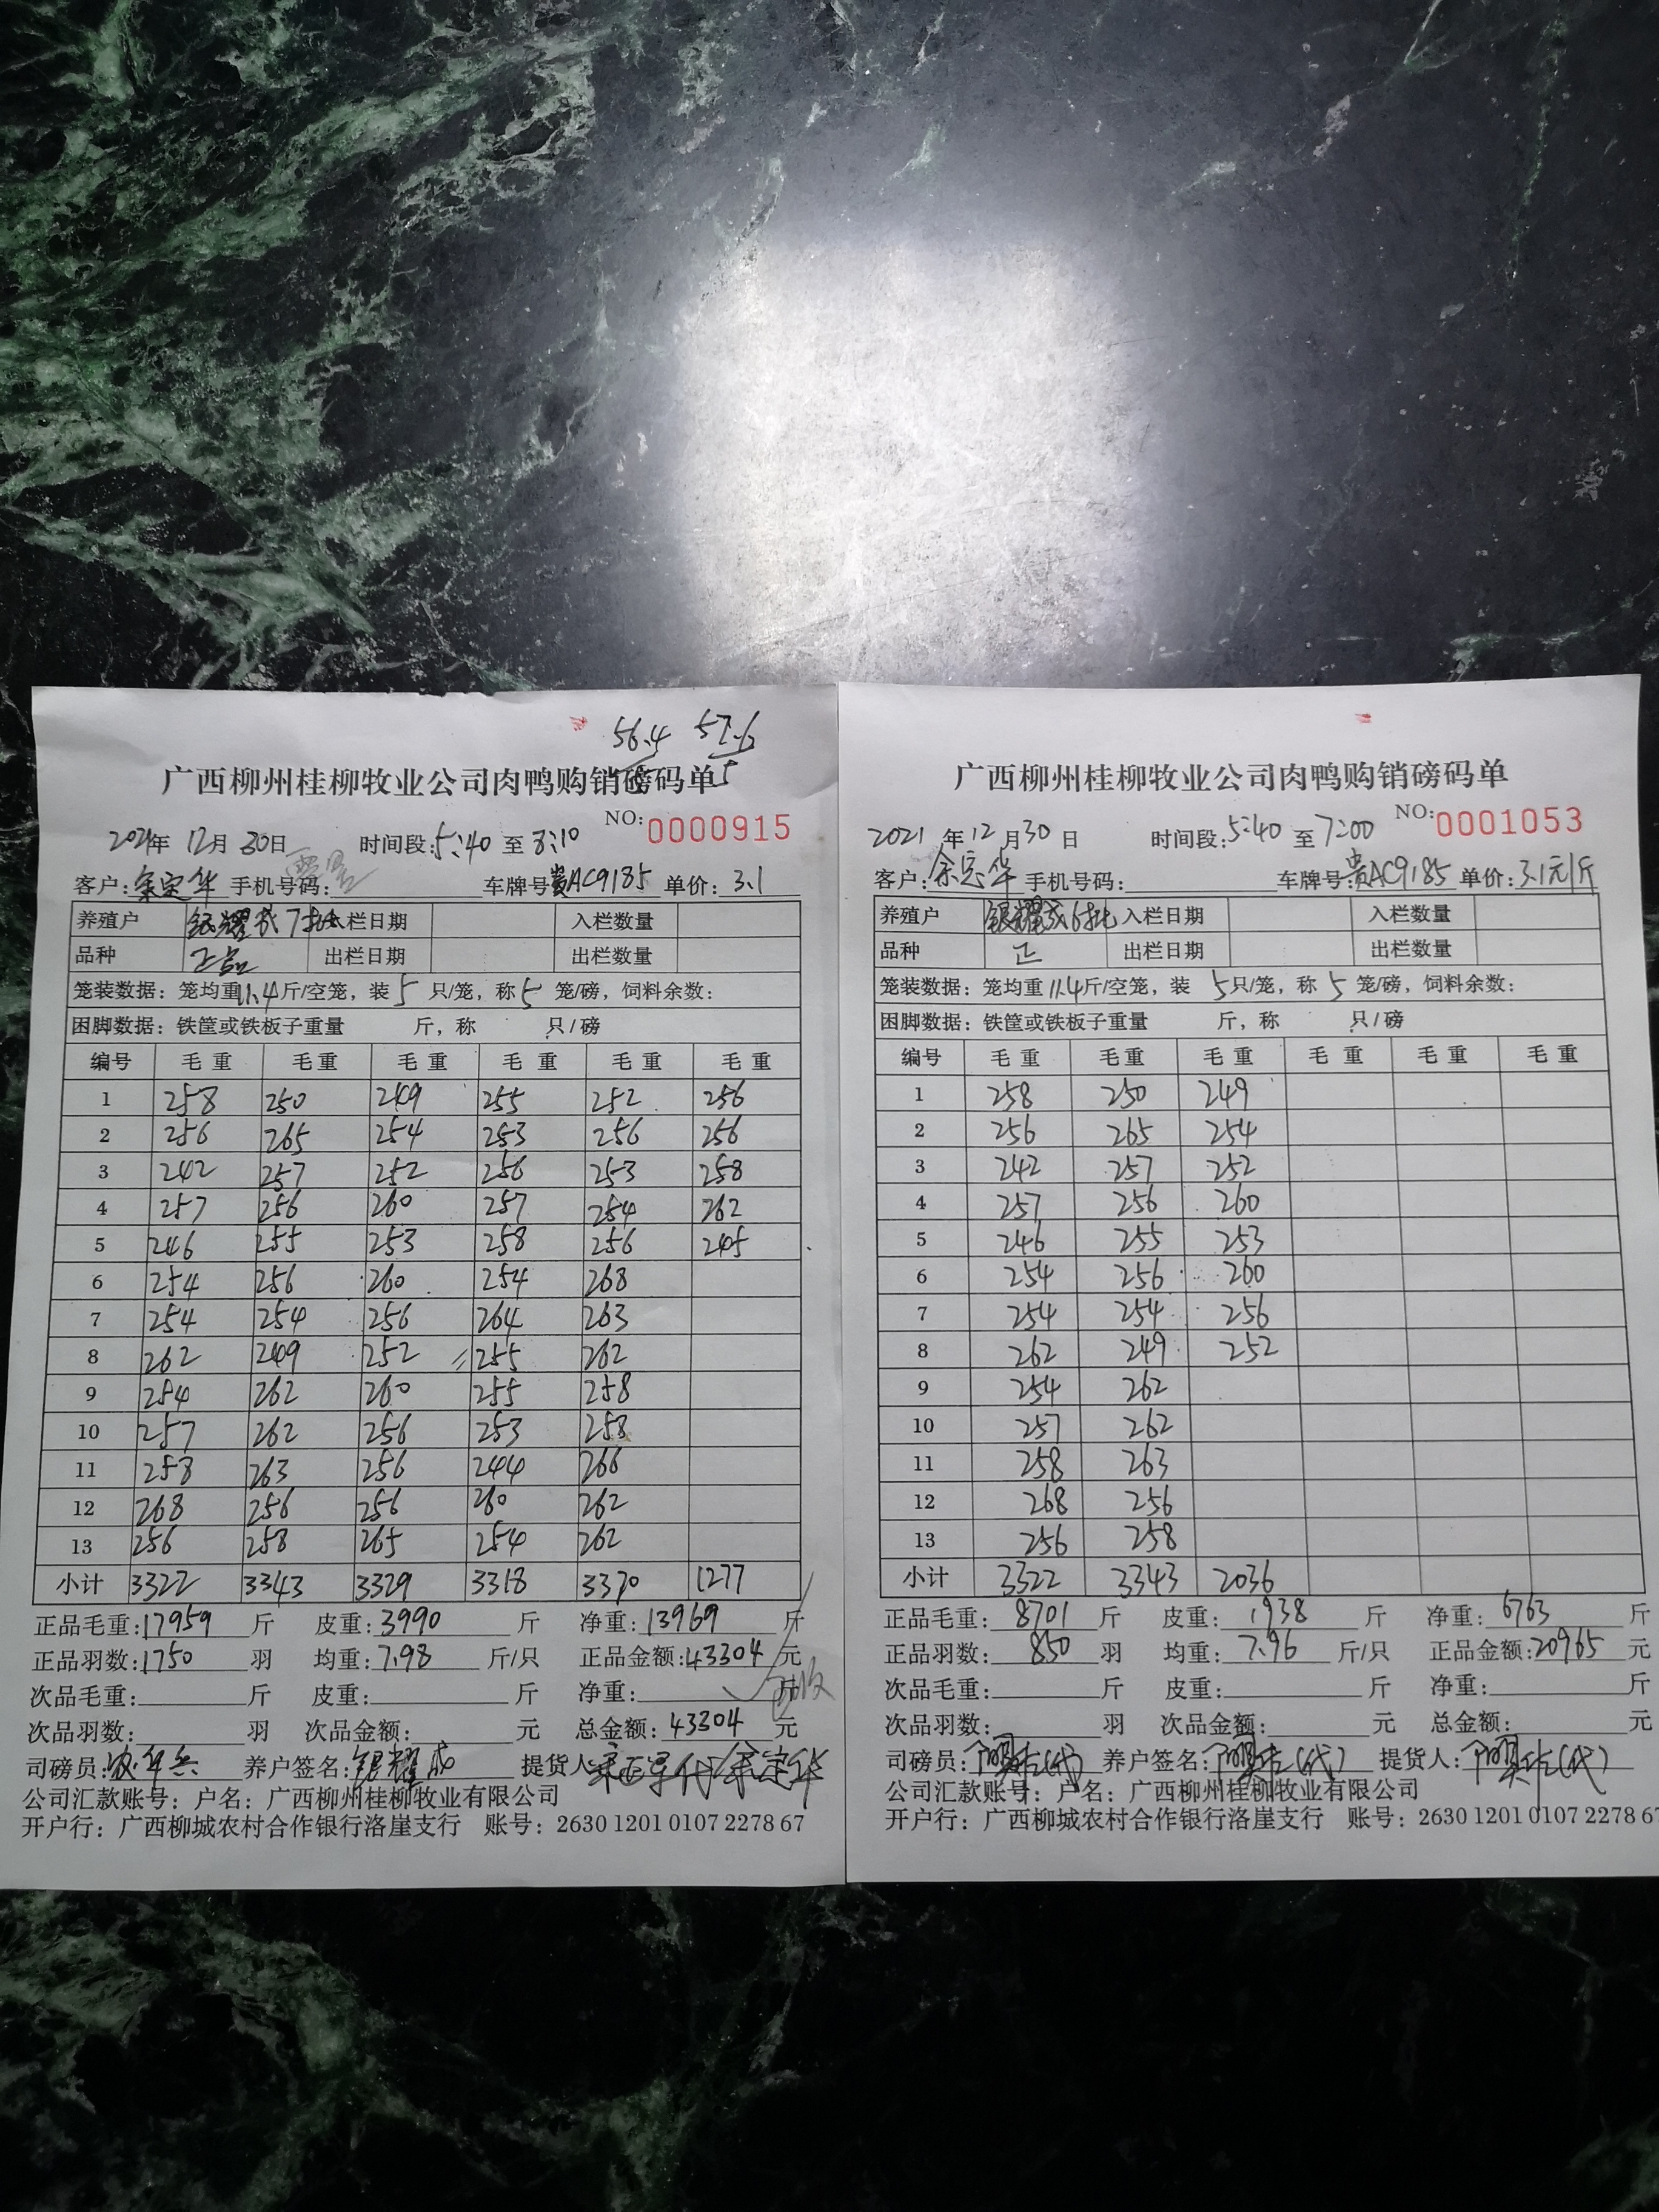 56.4 57.6
5 5
广西柳州桂柳牧业公司肉鸭购销磅码单
NO: 0000915
2021年 12月 30日 时间段: 5:40 至 8:10
客户: 余定华 手机号码: 车牌号: 贵AC9185 单价: 3.1
养殖户 银耀成7批 入栏日期 入栏数量
品种 正品 出栏日期 出栏数量
笼装数据: 笼均重11.4斤/空笼, 装 5 只/笼, 称 5 笼/磅, 饲料余数:
困脚数据: 铁筐或铁板子重量 斤, 称 只/磅
编号 毛重 毛重 毛重 毛重 毛重 毛重
1 258 250 249 255 252 256
2 256 265 254 253 256 256
3 242 257 252 256 253 258
4 257 256 260 257 254 262
5 246 255 253 258 256 245
6 254 256 260 254 268
7 254 254 256 264 263
8 262 249 252 255 262
9 254 262 260 255 258
10 257 262 256 253 258
11 258 263 256 244 266
12 268 256 256 260 262
13 256 258 265 254 262
小计 3322 3343 3329 3318 3370 1277
正品毛重: 17959 斤 皮重: 3990 斤 净重: 13969 斤
正品羽数: 1750 羽 均重: 7.98 斤/只 正品金额: 43304 元
次品毛重: 斤 皮重: 斤 净重: 斤
次品羽数: 羽 次品金额: 元 总金额: 43304 元
司磅员: 养户签名: 银耀成 提货人: 代余定华
公司汇款账号: 户名: 广西柳州桂柳牧业有限公司
开户行: 广西柳城农村合作银行洛崖支行 账号: 2630 1201 0107 2278 67
广西柳州桂柳牧业公司肉鸭购销磅码单
NO: 0001053
2021 年 12 月 30 日 时间段: 5:40 至 7:00
客户: 余定华 手机号码: 车牌号: 贵AC9185 单价: 3.1元/斤
养殖户 银耀成6批 入栏日期 入栏数量
品种 正 出栏日期 出栏数量
笼装数据: 笼均重11.4斤/空笼, 装 5只/笼, 称 5 笼/磅, 饲料余数:
困脚数据: 铁筐或铁板子重量 斤, 称 只/磅
编号 毛重 毛重 毛重 毛重 毛重 毛重
1 258 250 249
2 256 265 254
3 242 257 252
4 257 256 260
5 246 255 253
6 254 256 260
7 254 254 256
8 262 249 252
9 254 262
10 257 262
11 258 263
12 268 256
13 256 258
小计 3322 3343 2036
正品毛重: 8701 斤 皮重: 1938 斤 净重: 6763 斤
正品羽数: 850 羽 均重: 7.96 斤/只 正品金额: 20965 元
次品毛重: 斤 皮重: 斤 净重: 斤
次品羽数: 羽 次品金额: 元 总金额: 元
司磅员: (代) 养户签名: (代) 提货人: (代)
公司汇款账号: 户名: 广西柳州桂柳牧业有限公司
开户行: 广西柳城农村合作银行洛崖支行 账号: 2630 1201 0107 2278 67